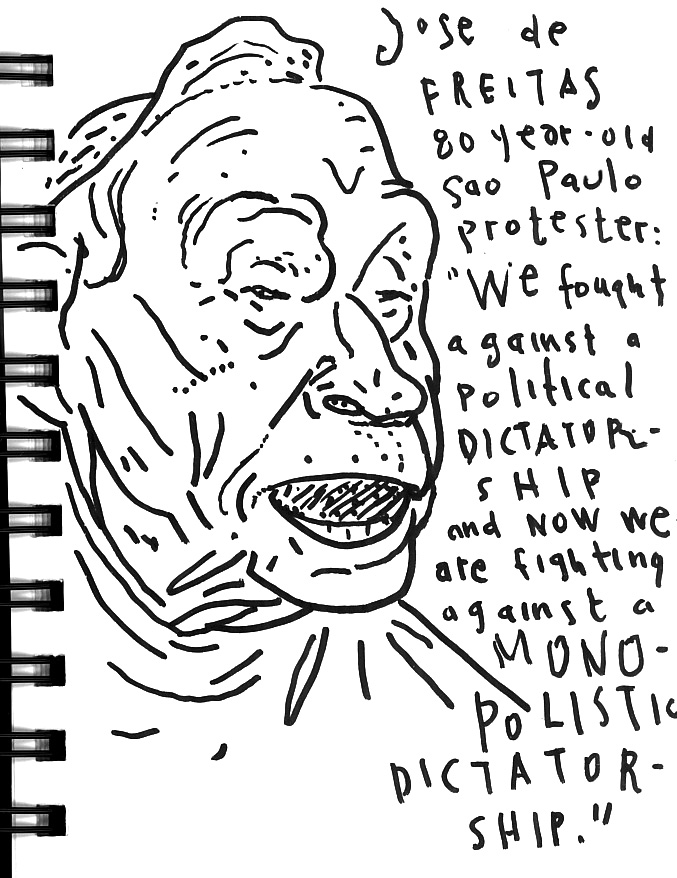 Jose de
FREITAS
80 year-old
Sao Paulo
protester:
"We fought
against a
political
DICTATOR-
SHIP
and NOW we
are fighting
against a
MONO-
POLISTIC
DICTATOR-
SHIP."